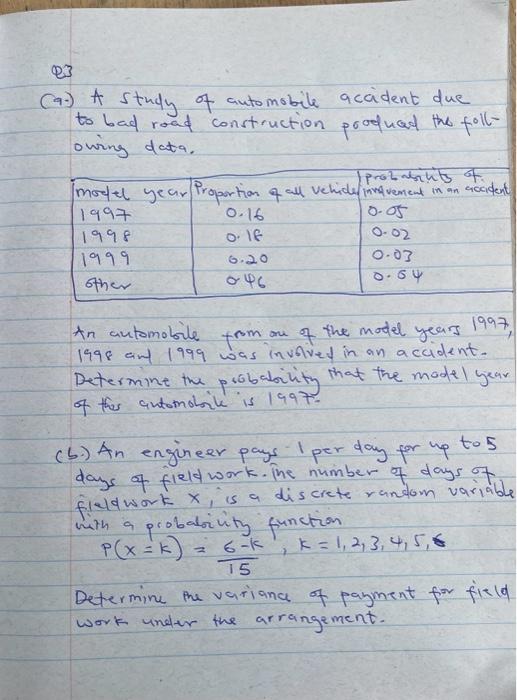 Q3
(a.) A study of automobile accident due
to bad road construction produced the foll-
owing data.
model year Proportion of all vehicle probability of involvement in an accident
1997 0.16 0.05
1998 0.18 0.02
1999 0.20 0.03
other 0.46 0.04
An automobile from one of the model years 1997,
1998 and 1999 was involved in an accident.
Determine the probability that the model year
of this automobile is 1997.
(b.) An engineer pays 1 per day for up to 5
days of fieldwork. The number of days of
fieldwork X, is a discrete random variable
with a probability function
P(X = K) = 6-K / 15 , K = 1, 2, 3, 4, 5,
Determine the variance of payment for field
work under the arrangement.